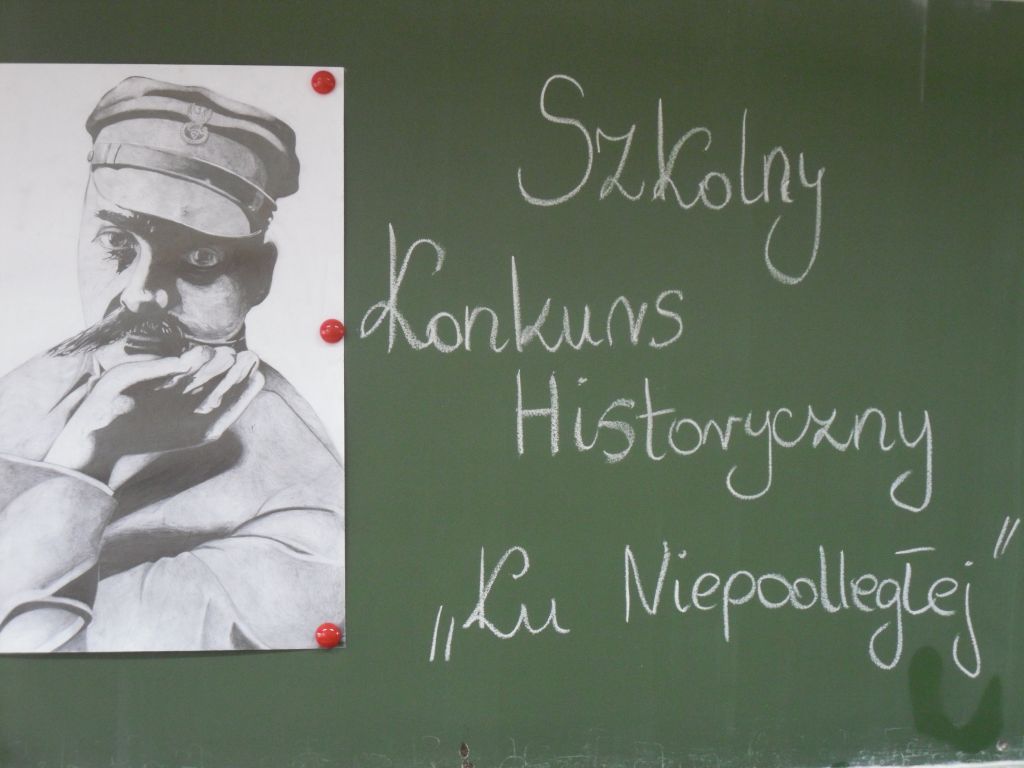 Szkolny
Konkurs
Historyczny
„Ku Niepodległej"